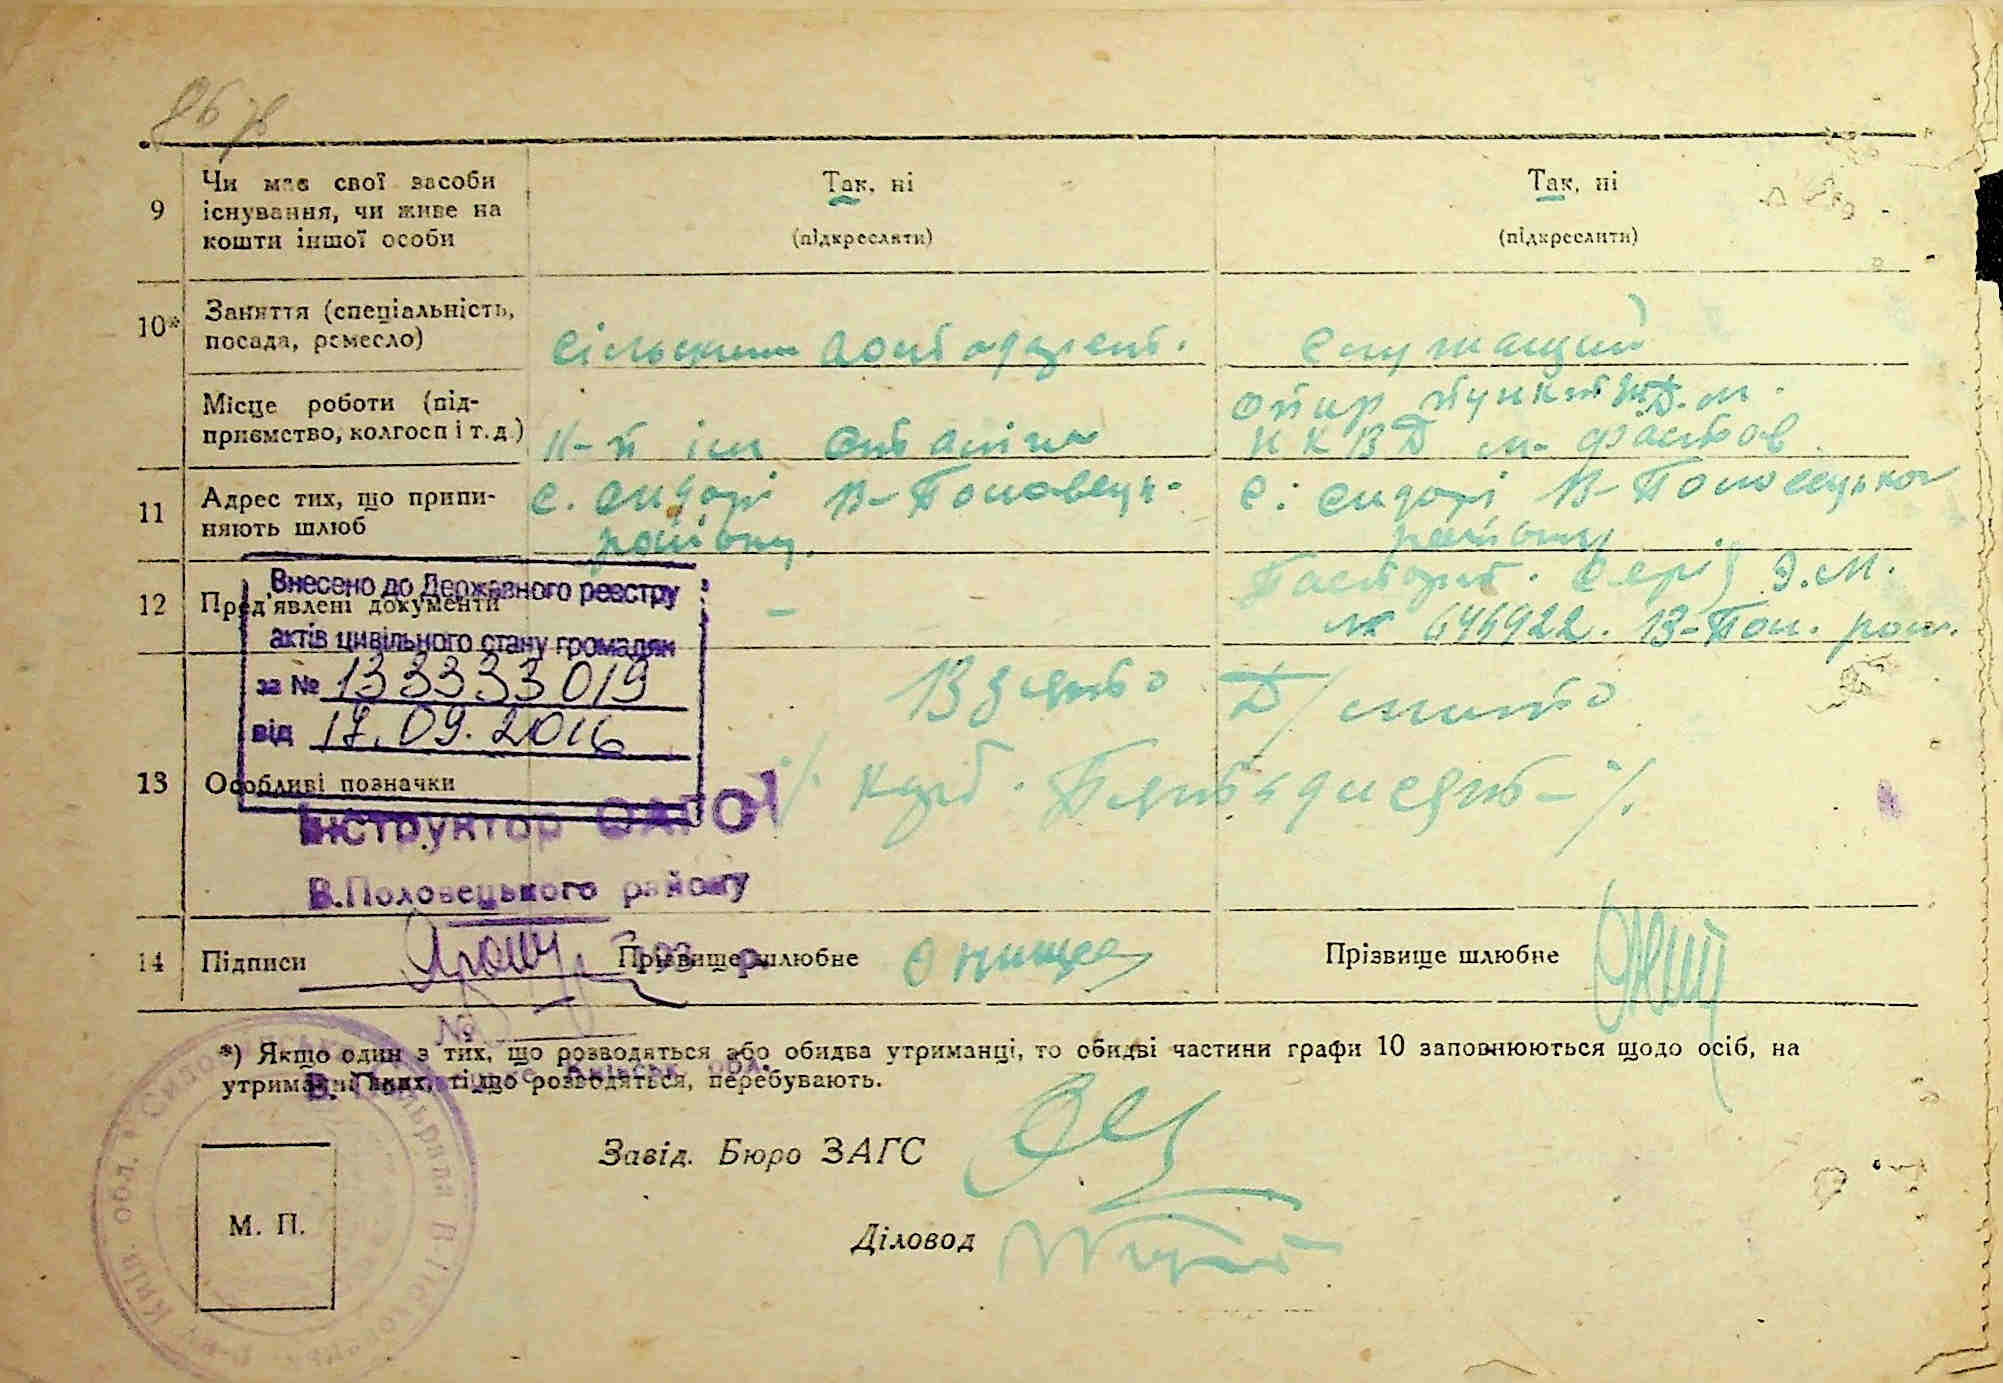 9 Чи має свої засоби існування, чи живе на кошти іншої особи
Так, ні
(підкреслити)
Так, ні
(підкреслити)
10* Заняття (спеціальність, посада, ремесло)
Служащий
Місце роботи (під-
приємство, колгосп і т.д.)
К-п ім
пункт
НКВД м. Фастов
11 Адрес тих, що припи-
няють шлюб
с. Сидорі В-Половець-
району.
с. Сидорі В-Половецького
району
12 Пред'явлені документи
-
Паспорт. Серія Э.М.
№ 644922. В-Пол. рай.
13 Особливі позначки
Взято Д/мито
/. карб. Пятьдисять - /.
Внесено до Державного реєстру
актів цивільного стану громадян
за № 133333019
від 17.09.2016
Інструктор ОАГС
В.Половецького району
14 Підписи
Прізвище шлюбне
Прізвище шлюбне
№
*) Якщо один з тих, що розводяться або обидва утриманці, то обидві частини графи 10 заповнюються щодо осіб, на
утриманні яких, ті що розводяться, перебувають.
Завід. Бюро ЗАГС
Діловод
М. П.